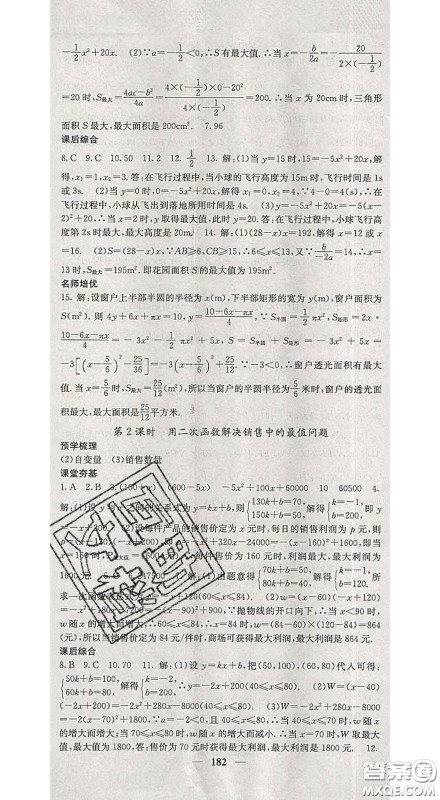 -1/2x²+20x. (2)∵a=-1/2<0,∴S有最大值.∴当x=-b/2a=-20/(2×(-1/2))
=20时,S最大=(4ac-b²)/4a=(4×(-1/2)×0-20²)/(4×(-1/2))=200.∴当x为20cm时,三角形
面积S最大,最大面积是200cm². 7.96
课后综合
8.C 9.C 10.50 11.2 12.1/2 13.解:(1)当y=15时,15=-5x²+20x,解
得,x₁=1,x₂=3.答:在飞行过程中,当小球的飞行高度为15m时,飞行时间是1s
或3s. (2)当y=0时,0=-5x²+20x,解得,x₁=0,x₂=4.∵4-0=4(s),∴在
飞行过程中,小球从飞出到落地所用时间是4s. (3)y=-5x²+20x=-5(x-
2)²+20,∴当x=2时,y取得最大值.答:在飞行过程中,小球飞行高
度第2s时最大,最大高度是20m. 14.解:(1)x(28-x)=192,解得x=12或
x=16. (2)S=(28-x)x,∵AB≥6,BC≥15,∴6≤x≤13,又∵-b/2a=14,∴x=
13时,S最大=195m².即花园面积S的最大值为195m².
名师培优
15.解:设窗户上半部半圆的半径为x(m),下半部矩形的宽为y(m),窗户面积为
S(m²).则4y+6x+πx=10,y=(10-6x-πx)/4,S半圆=1/2πx²,S矩形=
2x×(10-6x-πx)/4=-3x²-1/2πx²+5x.∴S=1/2πx²-3x²-1/2πx²+5x=
-3[(x-5/6)²-25/36]=-3(x-5/6)²+25/12.∵-3<0,∴窗户透光面积S有最
大值.当x=5/6(m)时,S最大=25/12(m²),所以当窗户的半圆半径为5/6米时,窗户的透光面
积最大,最大面积是25/12平方米.
第2课时 用二次函数解决销售中的最值问题
预学梳理
(2)自变量 (3)销售数量
课堂夯基
1.A 2.B 3.(100+x) (600-5x) y=-5x²+100x+60000 10 60500 4.
解:(1)设y与x之间的关系式为y=kx+b,则{130k+b=70, 150k+b=50,解得{k=-1, b=200.∴y
=-x+200. (2)设每件产品的销售价定为x元时,每日的销售利润为p元,则
p=(x-120)(-x+200)=-(x-160)²+1600.
销售价为160元时,利润最大,最大利润为
1600元. 5. 6. 7.解:(1)由题意得{65k+b=55, 75k+b=45,解得{k=-1, b=120.所
求一次函数
=-x²+180x-7200=-(x-90)²+900,∵抛物线的开口向下,∴当x<90时,
w随x的增大而增大,而60≤x≤84,∴当x=84时,w=-(84-90)²+900=864.
答:当销售价定为84元/件时,商场可获得最大利润,最大利润是864元.
课后综合
8.B 9.C 10.70 11.解:(1)设y=kx+b,把(50,100),(60,80)代入可得:
{50k+b=100, 60k+b=80,解得{k=-2, b=200.∴y=-2x+200(40≤x≤80). (2)W=(x-40)
(-2x+200)=-2x²+280x-8000=-2(x-70)²+1800(40≤x≤80). (3)W=
-2(x-70)²+1800,a=-2<0,抛物线开口向下.∵40≤x≤80,∴当x<70时,w随x
的增大而增大;当x>70时,w随x的增大而减小.∴当x=70时,W取最大
值,最大值为1800,答:当售价为70元时获得最大利润,最大利润是1800元. 12.
182
作业答案
MXQE.COM